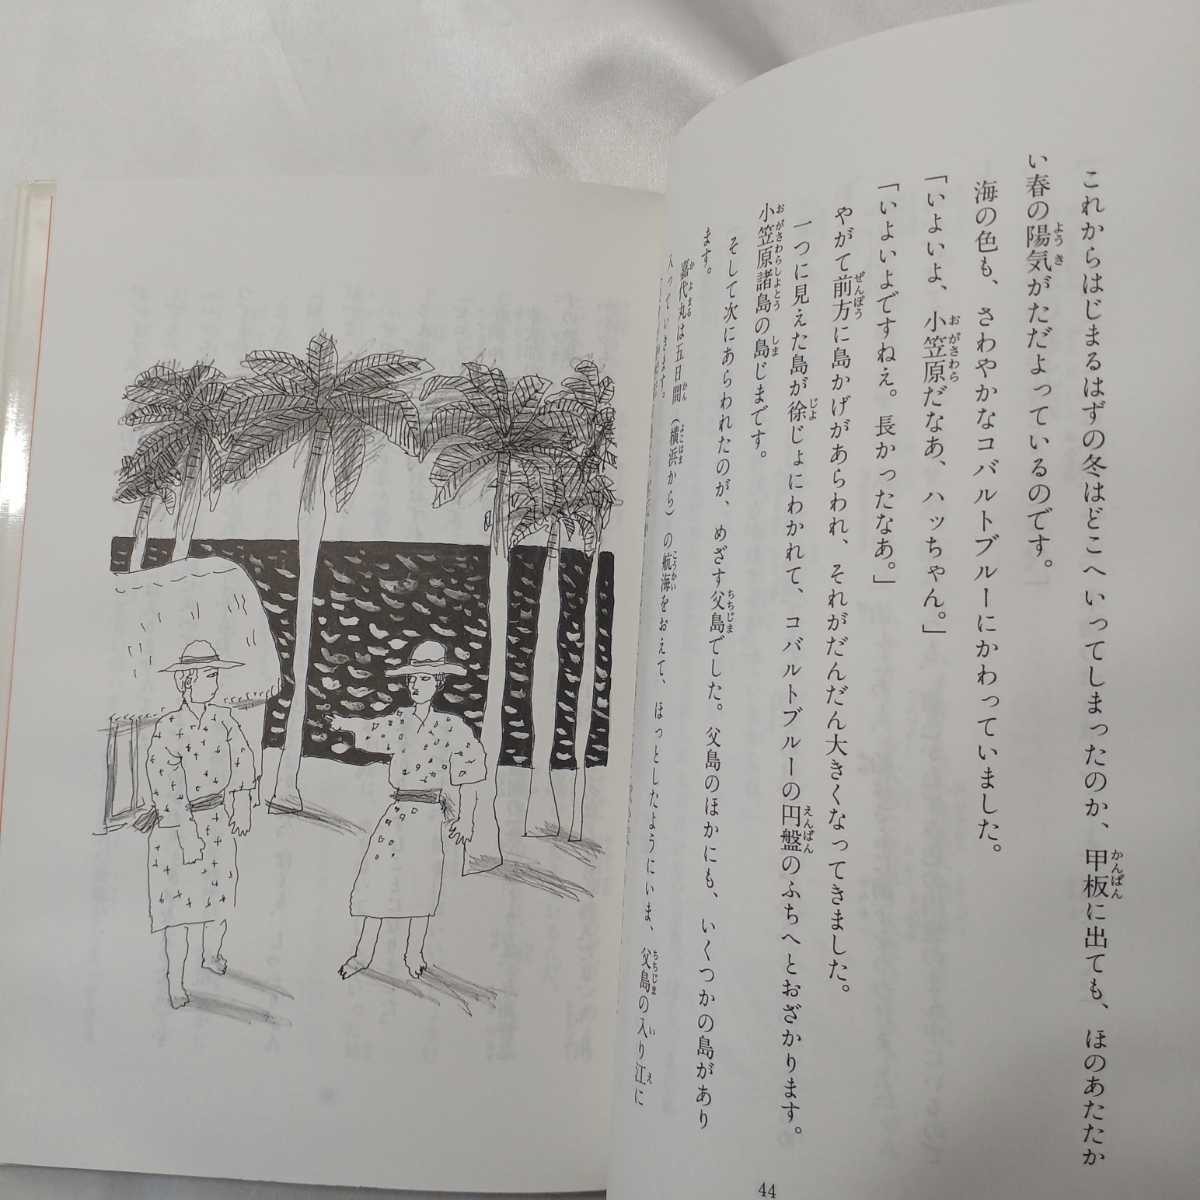 これからはじまるはずの冬はどこへいってしまったのか、甲板に出ても、ほのあたたか
い春の陽気がただよっているのです。
海の色も、さわやかなコバルトブルーにかわっていました。
「いよいよ、小笠原だなあ、ハッちゃん。」
「いよいよですねぇ。長かったなあ。」
やがて前方に島かげがあらわれ、それがだんだん大きくなってきました。
一つに見えた島が徐じょにわかれて、コバルトブルーの円盤のふちへとおざかります。
小笠原諸島の島じまです。
そして次にあらわれたのが、めざす父島でした。父島のほかにも、いくつかの島があり
ます。
嘉代丸は五日間（横浜から）の航海をおえて、ほっとしたようにいま、父島の入り江に
入っていきます。
44